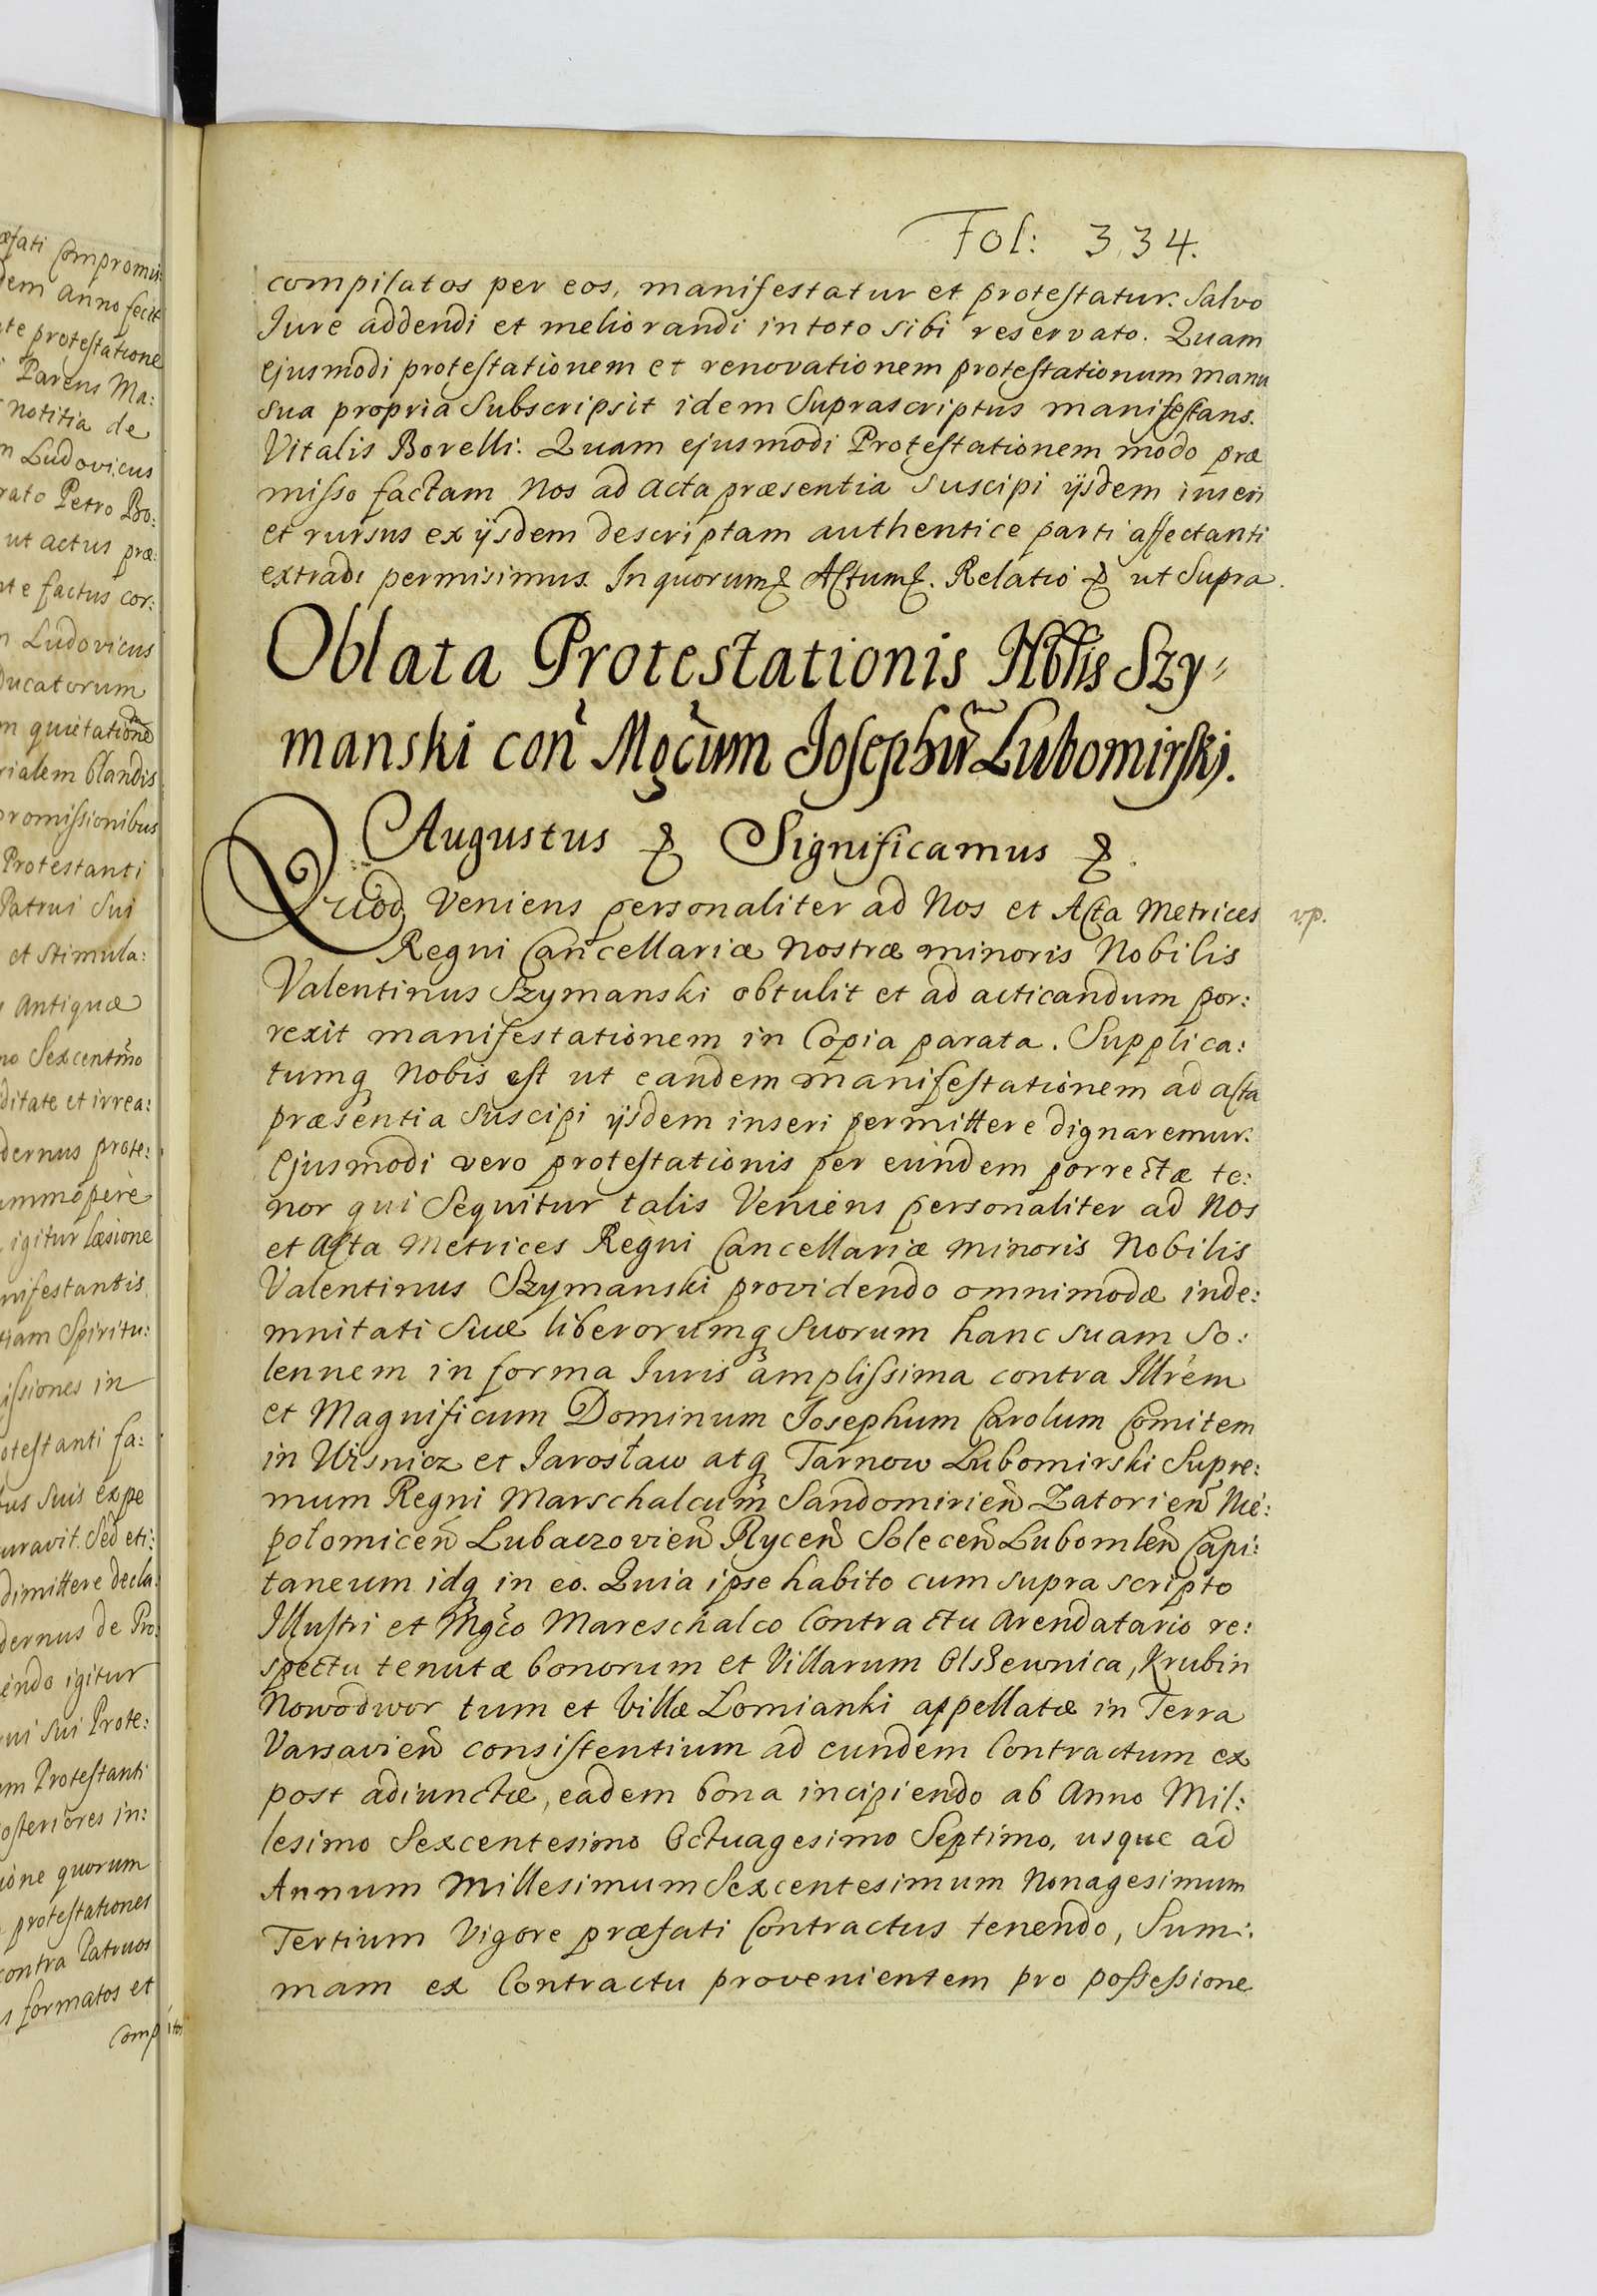 æfati Compromis:
dem anno fecit
te protestatione
Parens Ma:
notitia de
m Ludovicus
rato Petro Bo:
ut actus præ:
te factus cor:
n Ludovicus
ducatorum
m quietatione
rialem blandis
promissionibus
Protestanti
Patrui Sui
et stimula:
Antiquæ
no Sexcentmo
ditate et irrea:
dernus prote:
ummopere
igitur læsione
nifestantis
tiam Spiritu:
issiones in
otestanti fa:
us suis expe
uravit. Sed eti:
dimittere decla:
dernus de Pro:
endo igitur
ui sui Prote:
um Protestanti
osteriores in:
ione quorum
protestationes
contra Patruos
s formatos et
Fol: 334.
compilatos per eos, manifestatur et protestatur. Salvo
Jure addendi et meliorandi in toto sibi reservato. Quam
ejusmodi protestationem et renovationem protestationum manu
sua propria Subscripsit idem Suprascriptus manifestans.
Vitalis Borelli. Quam ejusmodi Protestationem modo præ
misso factam Nos ad acta præsentia suscipi ijsdem inseri
et rursus ex ijsdem descriptam authentice parti affectanti
extradi permisimus. In quorum & Actum &. Relatio & ut Supra.
Oblata Protestationis Nblis Szy=
manski con Mgcum Josephu Lubomirskj.
Augustus & Significamus &.
Quod Veniens personaliter ad Nos et Acta Metrices
vp.
Regni Cancellariæ nostræ minoris Nobilis
Valentinus Szymanski obtulit et ad acticandum por:
rexit manifestationem in Copia parata. Supplica:
tumq Nobis est ut eandem manifestationem ad acta
præsentia suscipi ijsdem inseri permittere dignaremur.
Ejusmodi vero protestationis per eundem porrectæ te:
nor qui Sequitur talis Veniens personaliter ad Nos
et Acta Metrices Regni Cancellariæ minoris Nobilis
Valentinus Szymanski providendo omnimodæ inde:
mnitati Suæ liberorumq suorum hanc suam So:
lennem in forma Iuris amplissima contra Illrem
et Magnificum Dominum Josephum Carolum Comitem
in Wisnicz et Jarosław atq Tarnow Lubomirski Supre:
mum Regni Marschalcum Sandomirien Zatorien Nie:
polomicen Lubaczovien Rycen Solecen Lubomlen Capi:
taneum idq in eo. Quia ipse habito cum supra scripto
Illustri et Mgco Mareschalco Contractu Arendatario re:
spectu tenutæ bonorum et Villarum Olszewnica, Krubin
Nowodwor tum et Villæ Lomianki appellatæ in Terra
Varsavien consistentium ad eundem Contractum ex
post adiunctæ, eadem bona incipiendo ab Anno Mil:
lesimo Sexcentesimo Octuagesimo Septimo, usque ad
Annum Millesimum Sexcentesimum Nonagesimum
Tertium Vigore præfati Contractus tenendo, Sum:
mam ex Contractu provenientem pro possessione